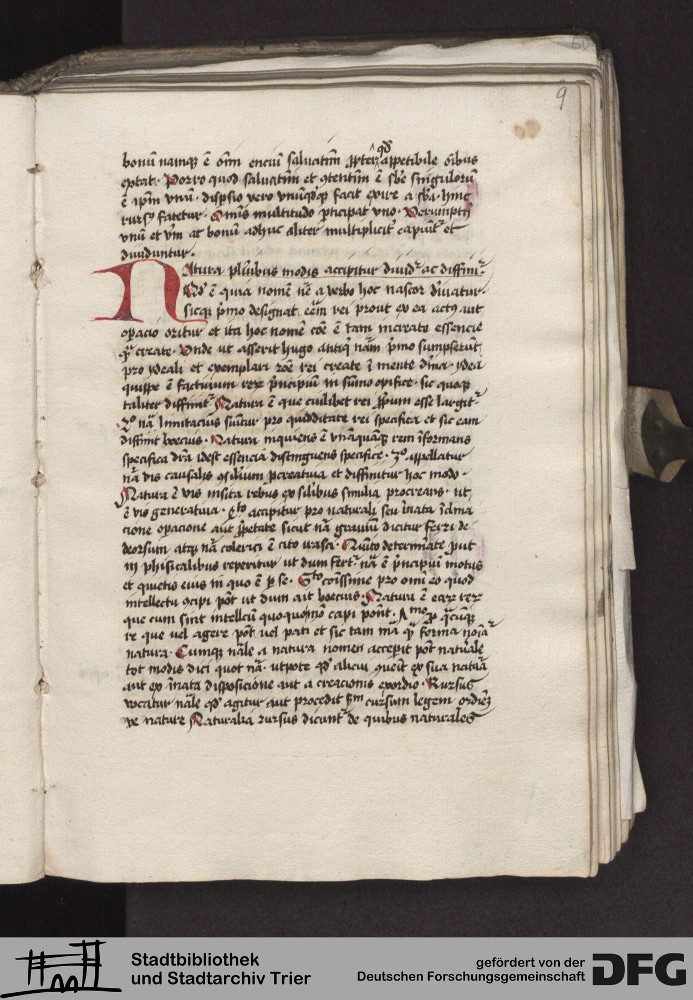 9
bonū namq̄ ē oīm enciū salvatiūm ꝓpter qd appetibile oībus
optat. Porro quod salvatiūm et ꝯtentiūm ē sbē singulorū
ē ip̄m vnū. dispsio vero vnūqdq̄ facit exire a sba. hinc
rursꝰ fatetur. Omīs multitudo pticipat vno. Verumptn̄
vnū et vm̄ ac bonū adhuc aliter multiplicit̄ capiūt̄ et
diuiduntur.
Natura pluribus modis accipitur diuidr̄ ac diffinir̄.
ē quia nomē nē a verbo hoc nascor diriuatur
sicqꝫ pimo designat eēm rei prout ex ea actꝰ aut
opacio oritur et ita hoc nomē coē ē tam increate essencie
qͣ create. Vnde ut asserit hugo antiqͥ nam̄ pimo sumpserūt
pro ydeali et exemplari roē rei create ī mente diīna. ydea
quippe ē facturium rerꝝ pͥncipiū in sūmo opifice. sic quoqꝫ
taliter diffinit̄. Natura ē que cuilibet rei ꝓpium esse largit̄.
2ͦ nā limitacius sūitur pro quidditate rei specifica et sic eam
diffinit boecius. Natura inquiens ē vnāquāqꝫ rem īformans
specifica drā idest essencia distinguens specifice. 3ͦ. appellatur
nā dis causalis ꝯsilium pcreatiua et diffinitur hoc modo.
Natura ē vis insita rebus ex silibus similia procreans. ut
ē vis generatiua. qto accipitur pro naturali seu īnata īclina
cione opacione aut ꝓpetate sicut nā grauiū dicitur ferri de
deorsum atqꝫ nā colerici ē cito irasci. Quīto determīate put
in phisicalibus reperitur ut dum fert̄. nā ē pͥncipiū motus
et quietis eius in quo ē p se. Sͭͦ coīssime pro omī eo quod
intellectu ꝯcipi pōt ut dum ait boecius. Natura ē earꝝ rerꝝ
que cum sint intellcū quoquomō capi pōnt. Amo. p qͣcūqꝫ
re que vel agere pōt vel pati et sic tam mā qͣ forma noīar̄
natura. Cumqꝫ nāle a natura nomen accepit pōt naturale
tot modis dici quot nā. utpote qd alicui ꝯuēit ex sua natura
aut ex īnata disposicione aut a creacionis exordio. Rursus
vocatur nāle qd agitur aut procedit sm cursum legem ordinē
ve nature Naturalia rursus dicunt̄ de quibus naturales
Stadtbibliothek
und Stadtarchiv Trier
gefördert von der
Deutschen Forschungsgemeinschaft
DFG